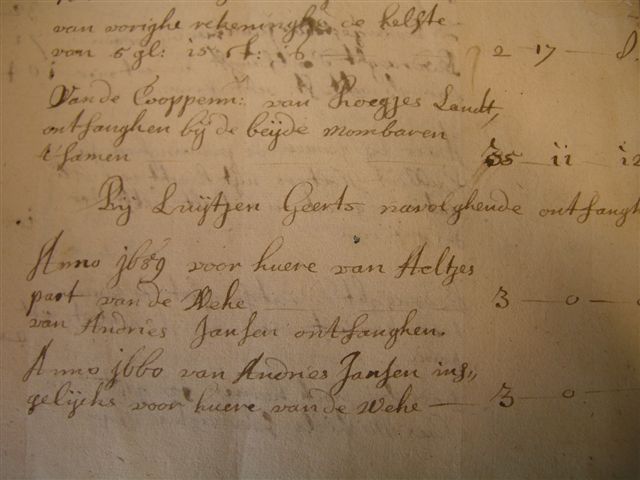 van vorighe rekeninghe de helfte
van 5 gl: 15 st: 16 — 2 — 17 — 8.
Vande Cooppenn: van Roegjes Landt,
ontfanghen bij de beijde mombaren
t'samen 35 — 11 — 12
Bij Luijtjen Geerts navolghende ontfangh
Anno 1659 voor huere van Aeltjes
part van de Wehe — 3 — 0 —
van Andries Jansen ontfanghen.
Anno 1660 van Andries Jansen ins„
gelijcks voor huere van de Wehe — 3 — 0 —